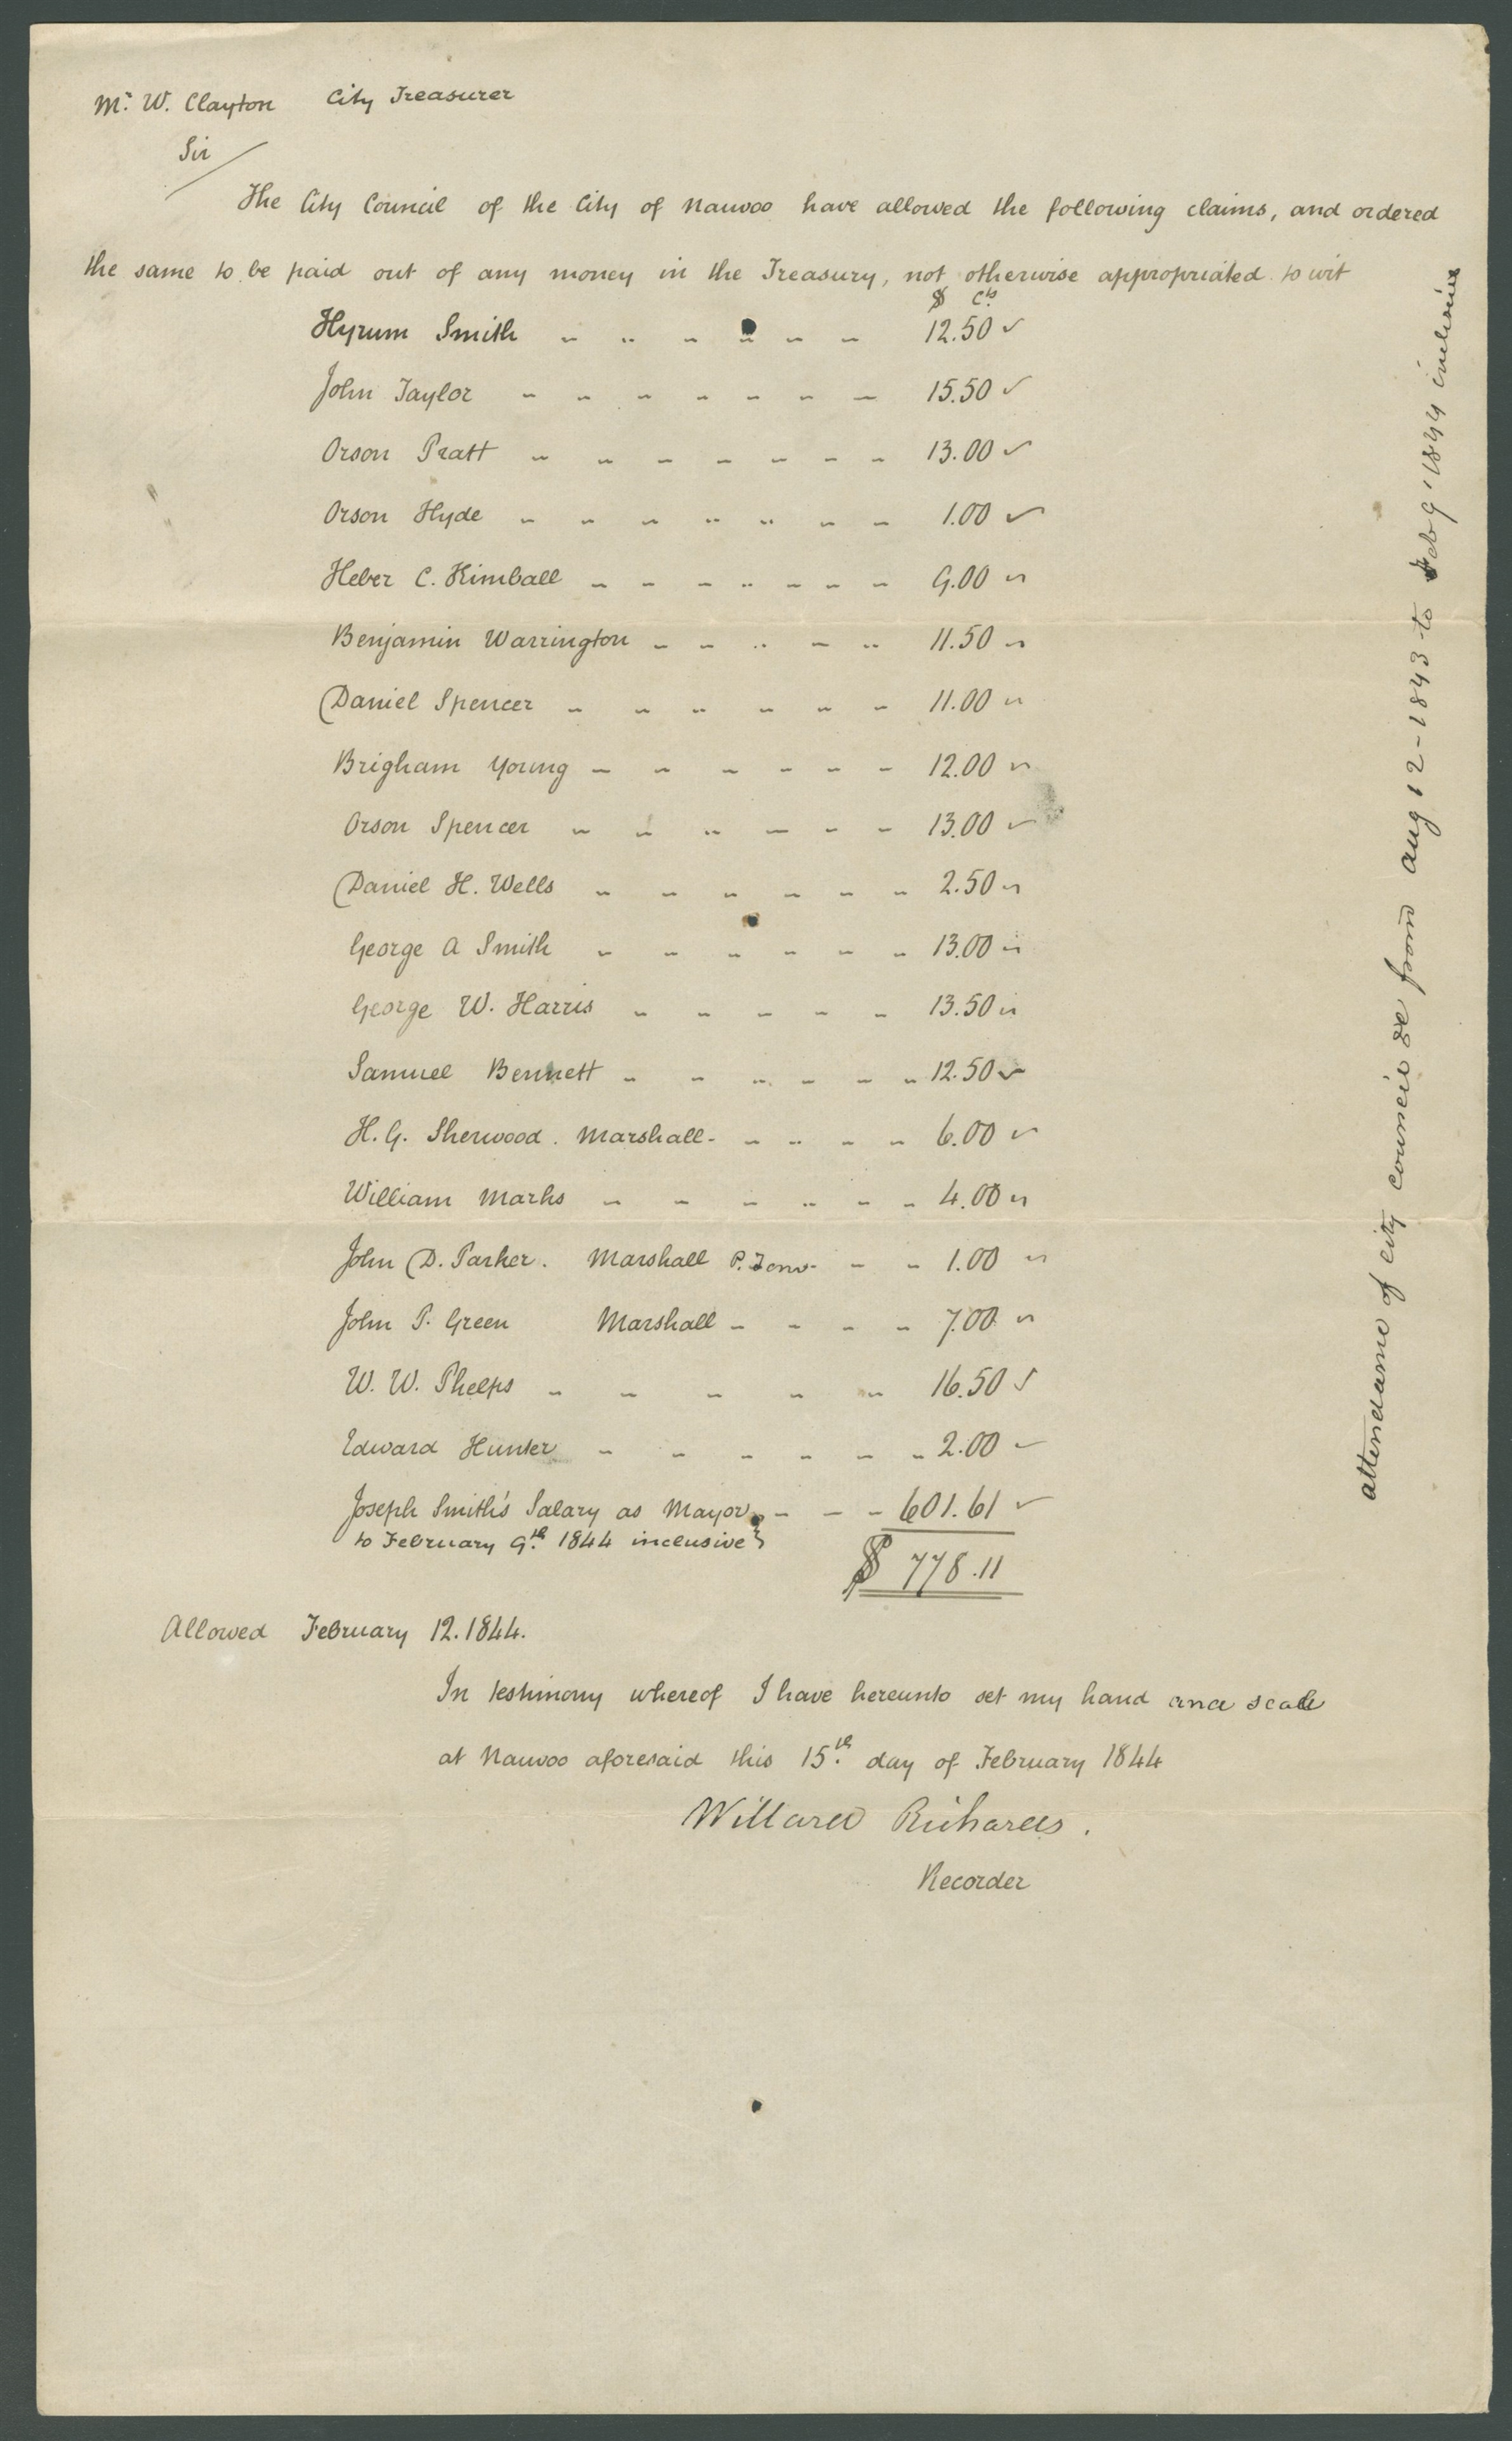 Mr. W. Clayton City Treasurer
Sir
The City Council of the City of Nauvoo have allowed the following claims, and ordered
the same to be paid out of any money in the Treasury, not otherwise appropriated to wit
$ Cts.
Hyrum Smith 12.50
John Taylor 15.50
Orson Pratt 13.00
Orson Hyde 1.00
Heber C. Kimball 9.00
Benjamin Warrington 11.50
Daniel Spencer 11.00
Brigham Young 12.00
Orson Spencer 13.00
Daniel H. Wells 2.50
George A Smith 13.00
George W. Harris 13.50
Samuel Bennett 12.50
H. G. Sherwood. Marshall 6.00
William Marks 4.00
John D. Parker. Marshall P. Tem 1.00
John P. Green Marshall 7.00
W. W. Phelps 16.50
Edward Hunter 2.00
Joseph Smith's Salary as Mayor 601.61
to February 9th. 1844 inclusive
$ 778.11
Allowed February 12. 1844.
In testimony whereof I have hereunto set my hand and seale
at Nauvoo aforesaid this 15th. day of February 1844
Willard Richards.
Recorder
attendance of city council &c from aug 12-1843 to Feb 9 1844 inclusive